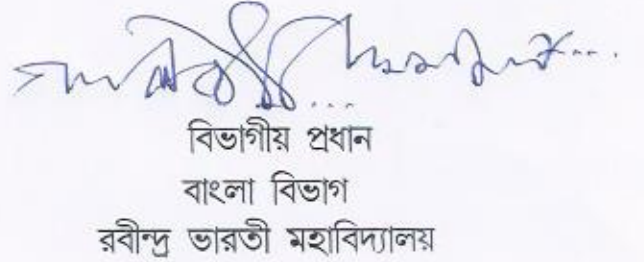 বিভাগীয় প্রধান
বাংলা বিভাগ
রবীন্দ্র ভারতী মহাবিদ্যালয়